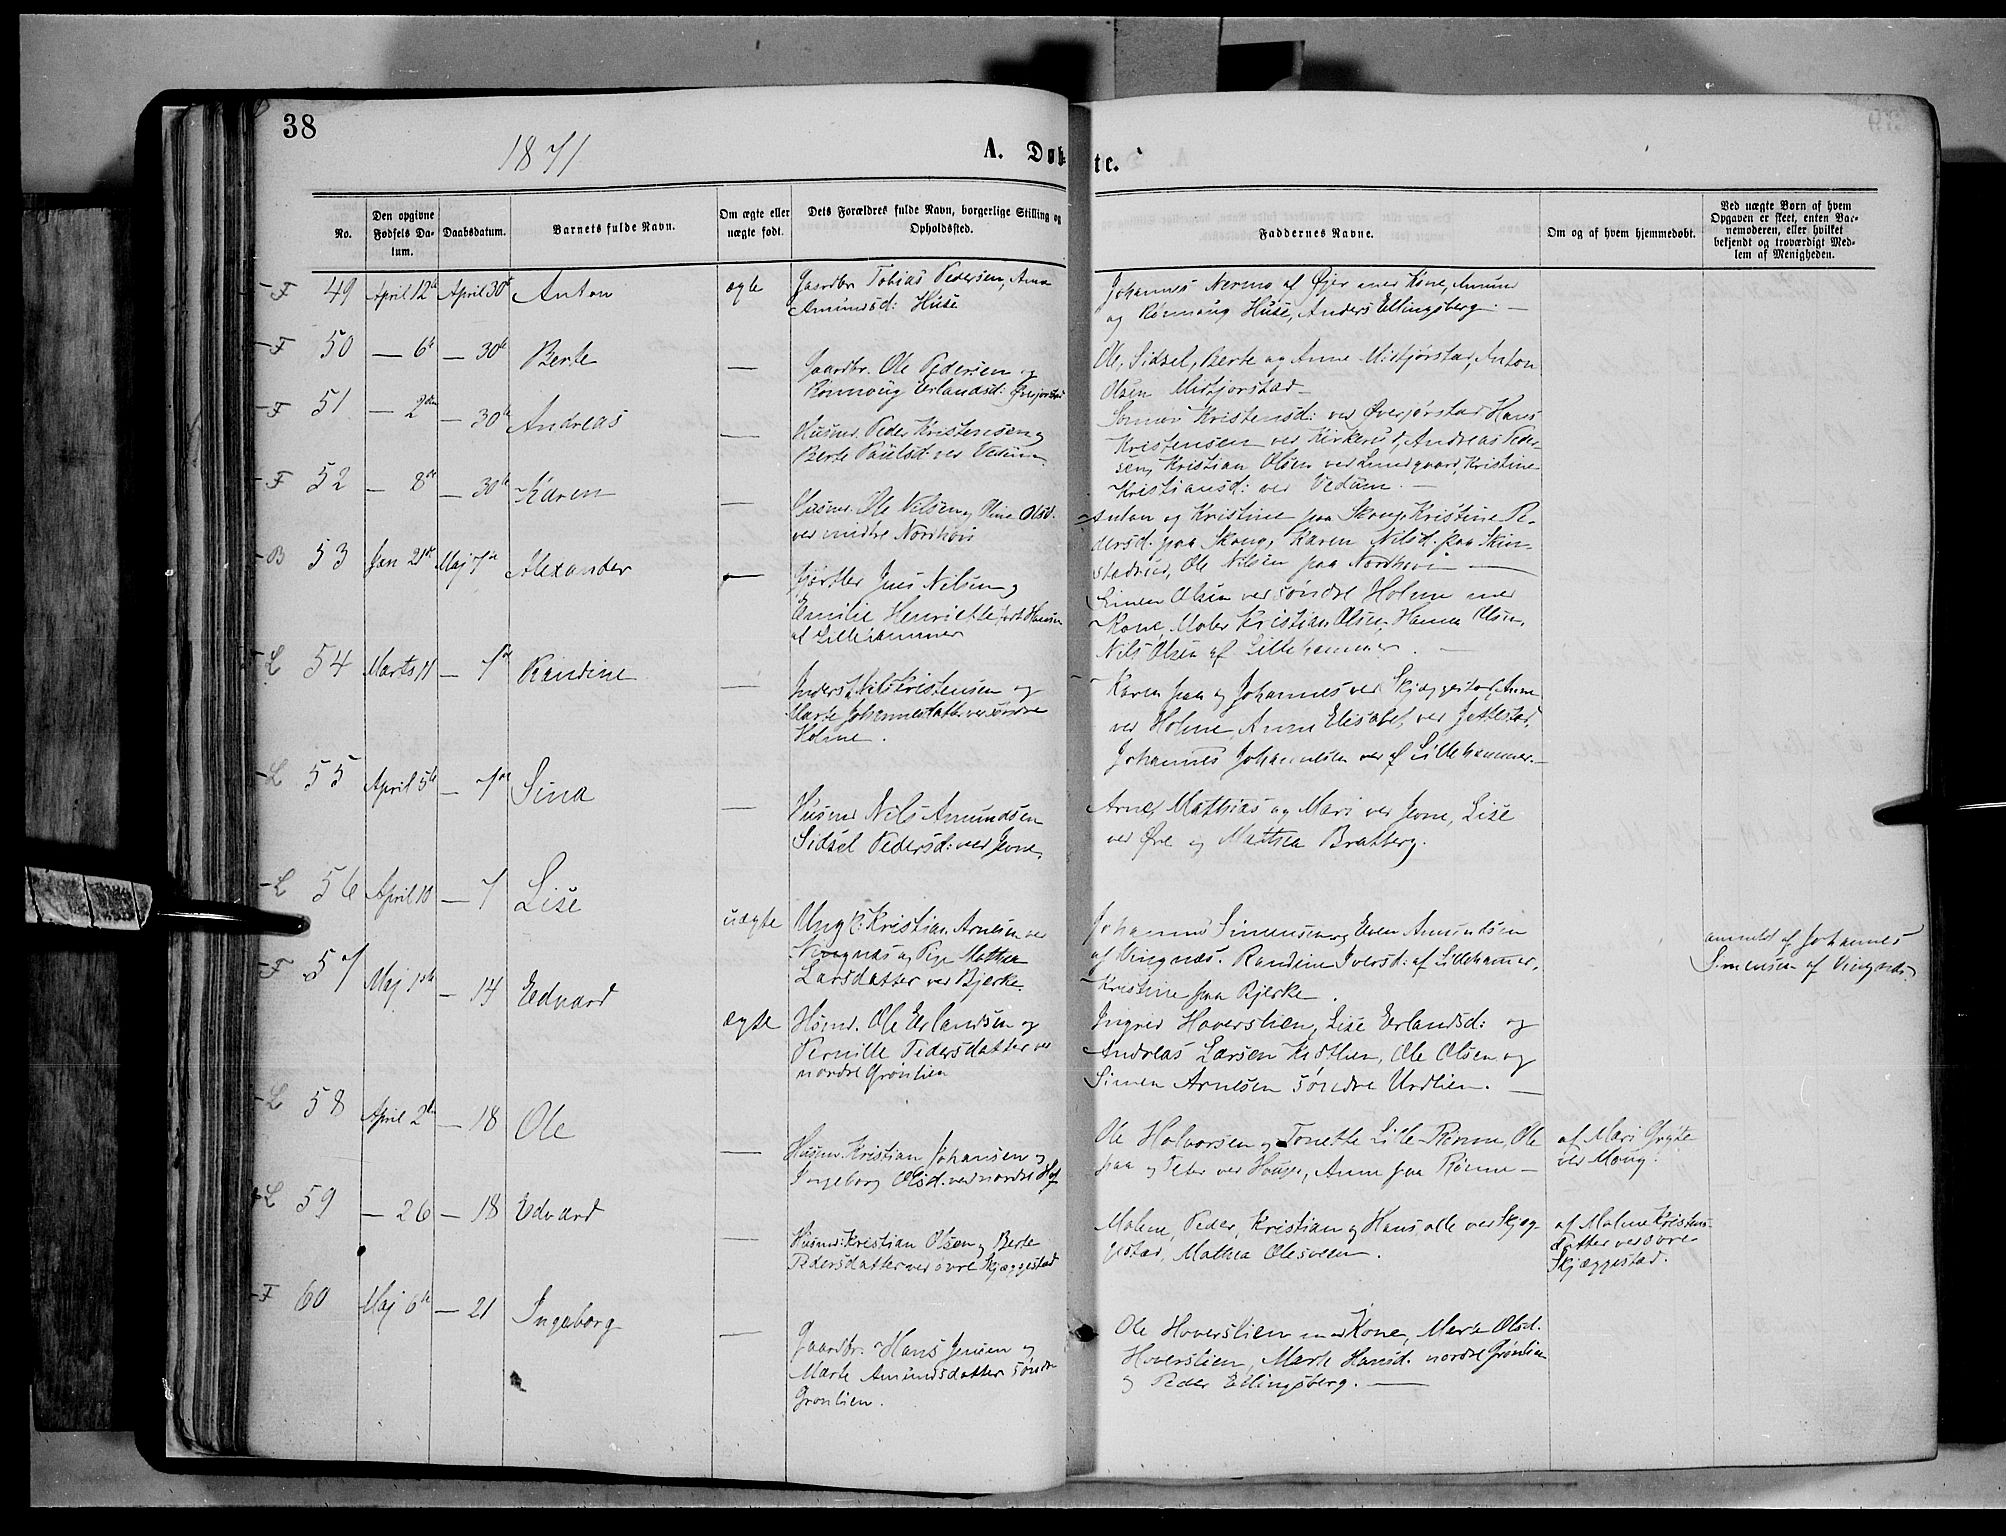 38
1871
A. Døbte.
No.
Den opgivne Fødsels Datum.
Daabsdatum.
Barnets fulde Navn.
Om ægte eller uægte født.
Dets Forældres fulde Navn, borgerlige Stilling og Opholdssted.
Faddernes Navne.
Om og af hvem hjemmedøbt.
Ved uægte Børn af hvem Opgaven er skeet, enten Barnemoderen, eller hvilket bekjendt og troværdigt Medlem af Menigheden.
F 49 April 12te April 30te Anton ægte
Gaardbr. Tobias Pedersen, Anne
Amundsd: Huse
Johannes Nermo af Øjer med Kone, Amund
og Rønnaug Huse, Anders Ellingsberg. —
F 50 — 6te — 30te Berte —
Gaardbr. Ole Pedersen og
Rønnaug Erlandsd:
Ole, Sidsel, Berte og Anne Misfjorstad, Anton
Olsen Misfjorstad —
F 51 — 2den — 30te Andreas —
Husmd. Peder Kristensen og
Berte Paulsd: ved Vedum
Kristensd: ved Øverjørstad Hans
Kristensen ved Kirkerud, Andreas Peder-
sen, Kristian Olsen ved Lundgaard, Kristine
Kristiansd: ved Vedum. —
F 52 — 8de — 30te Karen —
Husmd. Ole Nilsen og Oline Olsd.
ved nordre Nordhovi
Anton og Kristine paa Skoug, Kristine Pe-
dersd. paa Skoug, Karen Nilsd. paa
Ole Nilsen paa Nordhovi —
B 53 Jan 21de Maj 7de Alexander —
Gjørtler Jens Nilsen og
Emilie Henriette født Hansen
af Lillehammer
Simen Olsen ved søndre Holme med
Kone, Maler Kristian Olsen, Hanna Olsen,
Nils Olsen af Lillehammer. —
L 54 Marts 11 — 7de Randine —
Inderst Nils Kristensen og
Marte Johannesdatter ved søndre
Holme.
Karen paa og Johannes ved Skjæggestad, Anne
ved Holme, Anne Elisabet ved Jettestad,
Johannes Johannesen ved af Lillehammer. —
L 55 April 5te — 7de Sina —
Husmd Nils Amundsen
Sidsel Pedersd: ved Jevne,
Arne, Mathias og Mari ved Jevne, Lise
ved Øre og Mathea Bratberg.
L 56 April 10 — 7 Lise uægte
Ungk: Kristian Arnesen ved
Vingnæs og Pige Mathea
Larsdatter ved Bjerke.
Johannes Simensen og Even Amundsen
af Vingnæs. Randine Iversd: af Lillehammer,
Kristine paa Bjerke.
anmeldt af Johannes
Simensen af Vingnæs
F 57 Maj 1ste — 14 Edvard ægte
Husmd. Ole Erlandsen og
Pernille Pedersdatter ved
nordre Grønlien
Ingrid Hoverslien, Lise Erlandsd: og
Andreas Larsen Ole Olsen og
Simen Arnesen søndre Urdlien. —
L 58 April 2den — 18 Ole —
Husmd. Kristian Johansen og
Ingeborg Olsd. ved nordre Hof
Ole Halvorsen og Tonette Lille-Rønne, Ole
paa og Peter ved Houge, Anne paa Rønne —
af Mari
ved Moug.
L 59 — 26 — 18 Edvard —
Husmd: Kristian Olsen og Berte
Pedersdatter ved øvre Skjæggestad
Malene, Peder, Kristian og Hans, alle ved Skjæg-
gestad, Mathea Olesveen.
af Malene Kristens-
datter ved øvre
Skjæggestad.
F 60 Maj 6te — 21 Ingeborg —
Gaardbr. Hans Jensen og
Marte Amundsdatter søndre
Grønlien.
Ole Hoverslien med Kone, Marte Olsd.
Hoverslien, Marte Hansd. nordre Grønlien
og Peder Ellingsberg. —